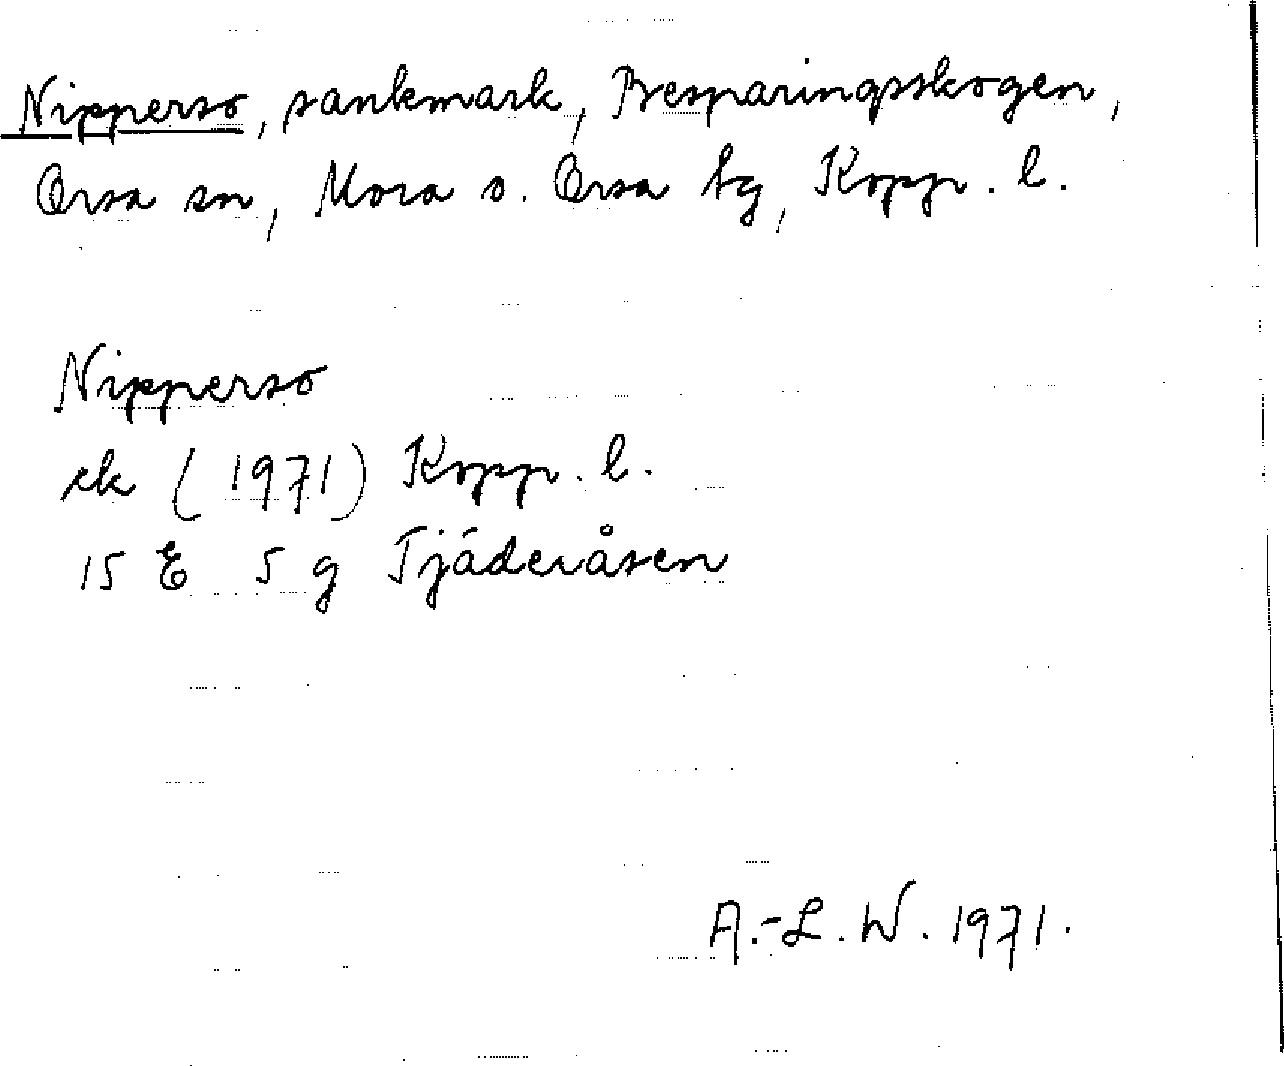 Nipperso, sankmark, Besparingsskogen,
Orsa sn, Mora o. Orsa tg, Kopp. l.
Nipperso
ek (1971) Kopp. l.
15 E 5 g Tjäderåsen
A.-L. W. 1971.